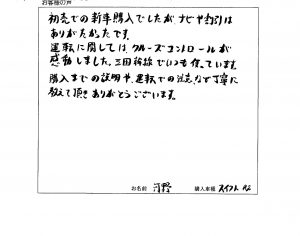 お客様の声
初売での新車購入でしたがナビや割引は
ありがたかったです。
運転に関しては、クルーズコントロールが
感動しました。三田幹線でいつも使っています。
購入までの説明や、運転での注意など丁寧に
教えて頂きありがとうございます。
お名前 河野 購入車種 スイフト RS